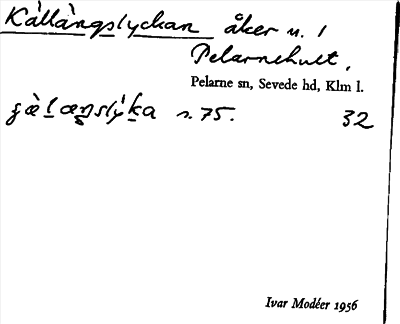 Källängslyckan åker n. 1
Pelarnehult,
Pelarne sn, Sevede hd, Klm l.
s. 75. 32
Ivar Modéer 1956